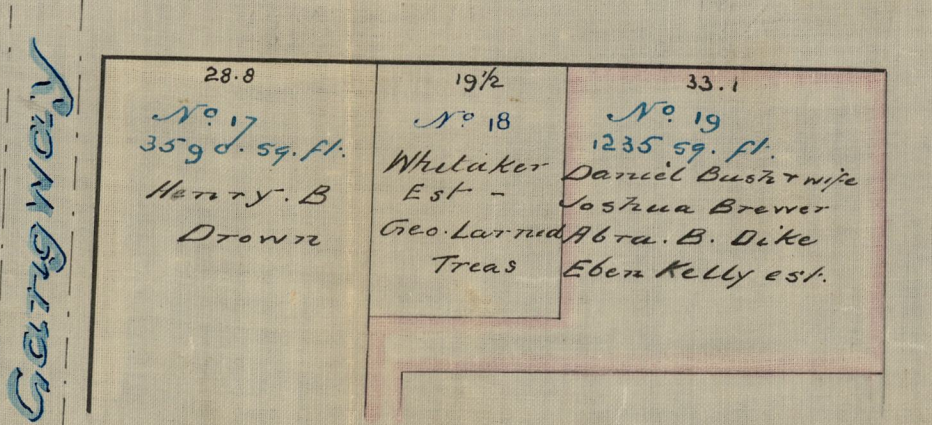 Gangway
28.8
No 17
3590. sq. ft.
Henry. B
Drown
19½
No 18
Whitaker
Est -
Geo. Larned
Treas
33.1
No 19
1235 sq. ft.
Daniel Bush & wife
Joshua Brewer
Abra. B. Dike
Eben Kelly est.